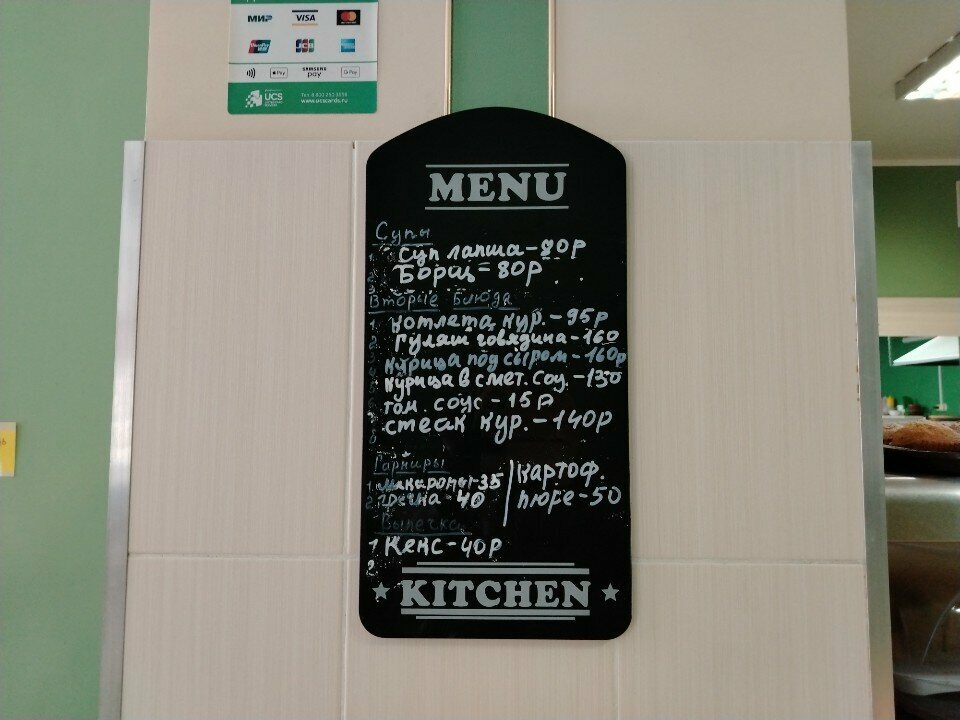 МИР VISA MasterCard
UnionPay JCB
Pay SAMSUNG pay G Pay
UCS
www.ucscards.ru
MENU
Супы
Суп лапша - 80р
Борщ = 80р
Вторые блюда
1. котлета кур. - 95р
2. Гуляш говядина - 160
курица под сыром - 160р
курица в смет. соу. - 130
том. соус - 15р
стеак кур. - 140р
Гарниры
1. макароны - 35 | картоф.
2. гречка - 40 | пюре - 50
Выпечка
1. Кекс - 40р
2.
KITCHEN